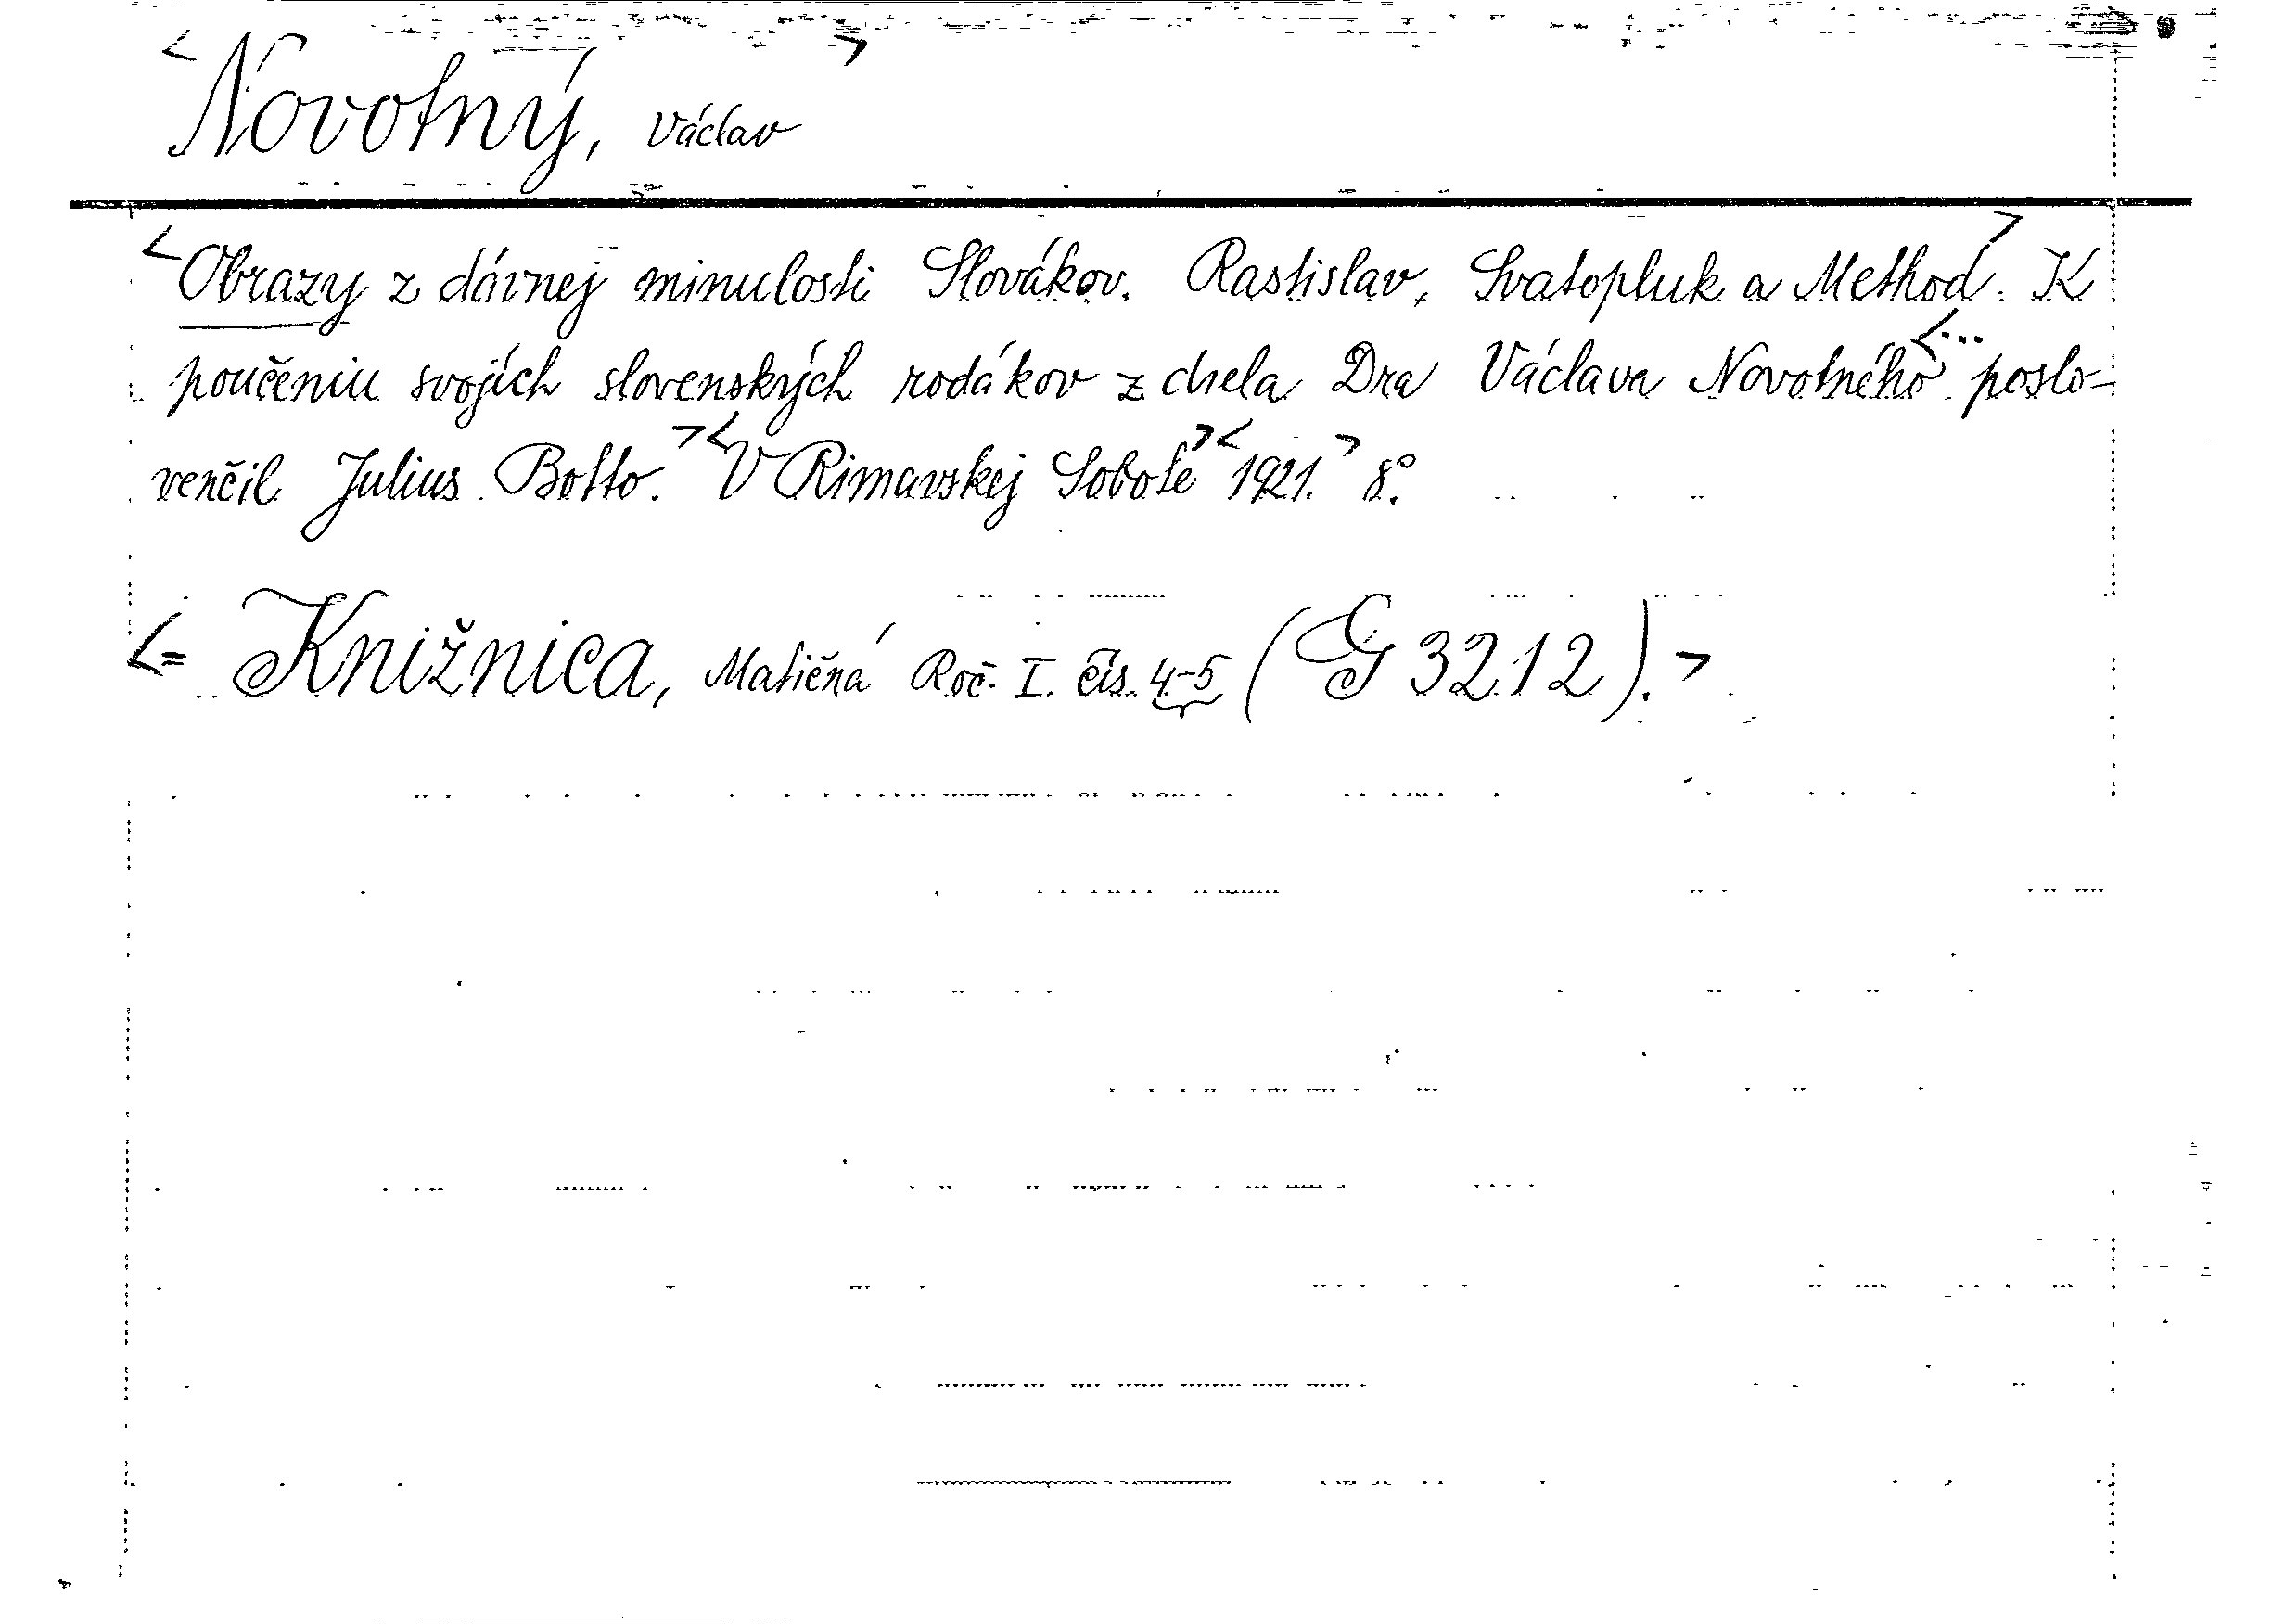 <Novotný, Václav>
<Obrazy z dávnej minulosti Slovákov. Rastislav, Svatopluk a Method.> K
poučeniu svojích slovenských rodákov z diela Dra Václava Novotného <... poslo-
venčil Julius Botto. ><V Rimavskej Sobote >< 1921. > 8°.
<= Knižnica, Matičná Roč. I. čís. 4-5 (G 3212). >